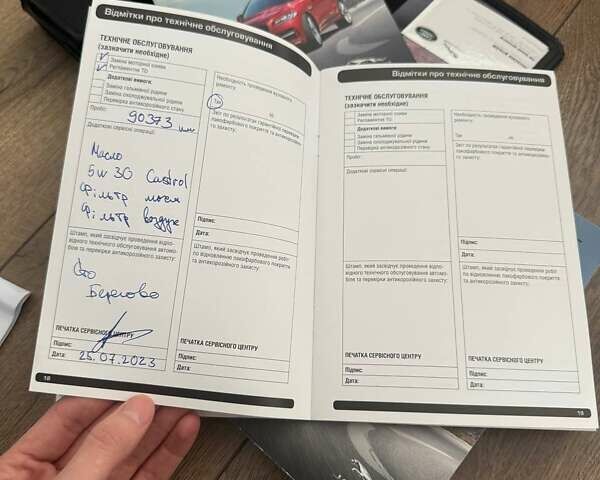 Відмітки про технічне обслуговування
ТЕХНІЧНЕ ОБСЛУГОВУВАННЯ
(зазначити необхідне)
Заміна моторної оливи
Регламентне ТО
Додаткові вимоги:
Заміна гальмівної рідини
Заміна охолоджувальної рідини
Перевірка антикорозійного стану
Пробіг:
90373 км
Додаткові сервісні операції:
Масло
5w30 Castrol
Фільтр масл
Фільтр воздух
Штамп, який засвідчує проведення відпо-
відного технічного обслуговування автомо-
біля та перевірки антикорозійного захисту:
Сто
Берегово
ПЕЧАТКА СЕРВІСНОГО ЦЕНТРУ
Підпис:
Дата: 25.07.2023
18
Необхідність проведення кузовного
ремонту:
Так
Ні
Звіт по результатах гарантійної перевірки
лакофарбового покриття та антикорозійного
захисту:
Підпис:
Дата:
Штамп, який засвідчує проведення робіт
по відновленню лакофарбового покриття
та антикорозійного захисту:
ПЕЧАТКА СЕРВІСНОГО ЦЕНТРУ
Підпис:
Дата:
Відмітки про технічне обслуговування
ТЕХНІЧНЕ ОБСЛУГОВУВАННЯ
(зазначити необхідне)
Заміна моторної оливи
Регламентне ТО
Додаткові вимоги:
Заміна гальмівної рідини
Заміна охолоджувальної рідини
Перевірка антикорозійного стану
Пробіг:
Додаткові сервісні операції:
Штамп, який засвідчує проведення відпо-
відного технічного обслуговування автомо-
біля та перевірки антикорозійного захисту:
ПЕЧАТКА СЕРВІСНОГО ЦЕНТРУ
Підпис:
Дата:
Необхідність проведення кузовного
ремонту:
Так
Ні
Звіт по результатах гарантійної перевірки
лакофарбового покриття та антикорозійного
захисту:
Підпис:
Дата:
Штамп, який засвідчує проведення робіт
по відновленню лакофарбового покриття
та антикорозійного захисту:
ПЕЧАТКА СЕРВІСНОГО ЦЕНТРУ
Підпис:
Дата:
19